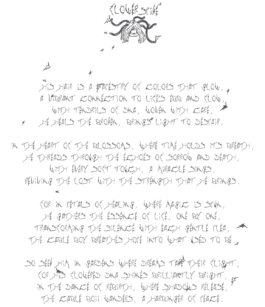 FLOWERSTIFF
HIS HAIR IS A TAPESTRY OF COLORS THAT GLOW,
A VIBRANT CONNECTION TO LIFE'S EBB AND FLOW,
WITH TENDRILS OF SILK, WOVEN WITH CARE,
HE HEALS THE BROKEN, BRINGS LIGHT TO DESPAIR.
IN THE HEART OF THE BLOSSOMS, WHERE TIME HOLDS ITS BREATH,
HE THREADS THROUGH THE ECHOES OF SORROW AND DEATH,
WITH EVERY SOFT TOUCH, A MIRACLE SINGS,
REVIVING THE LOST WITH THE STRENGTH THAT HE BRINGS.
FOR IN PETALS OF HEALING, WHERE MAGIC IS SEWN,
HE GATHERS THE ESSENCE OF LIFE, ONE BY ONE,
TRANSFORMING THE SILENCE WITH EACH GENTLE
THE BREATHES HOPE INTO WHAT USED TO BE.
SO SEEK HIM IN GARDENS WHERE DREAMS TAKE THEIR FLIGHT,
FOR HIS FLOWERED SHINES BRILLIANTLY BRIGHT,
IN THE DANCE OF REBIRTH, WHERE SHADOWS RELEASE,
THE WONDER, A HARBINGER OF PEACE.